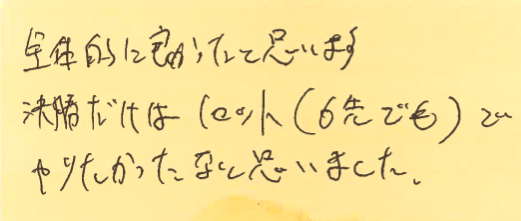 全体的に良かったと思います
決勝だけは1セット(6先でも)で
やりたかったなと思いました。